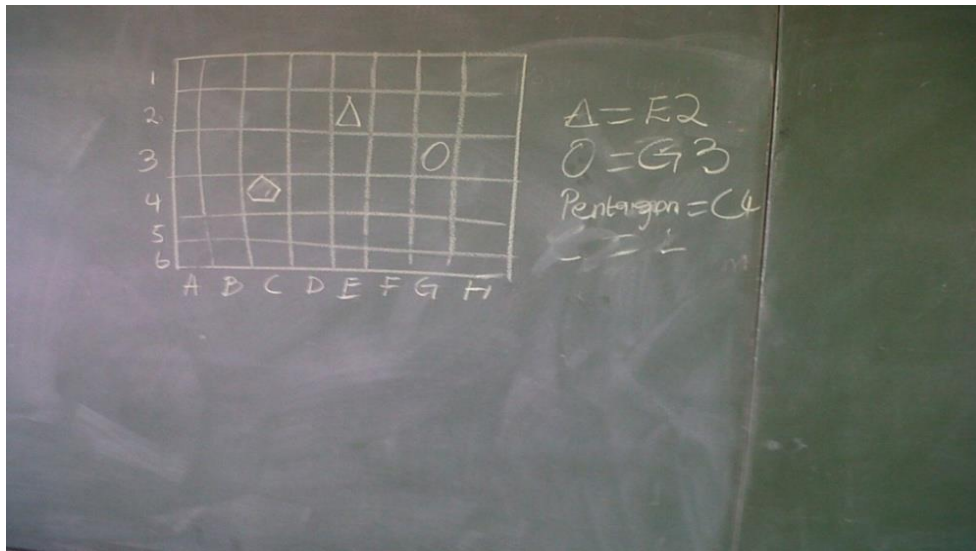 1
2
3
4
5
6
A B C D E F G H
Δ = E2
O = G3
Pentagon = C4